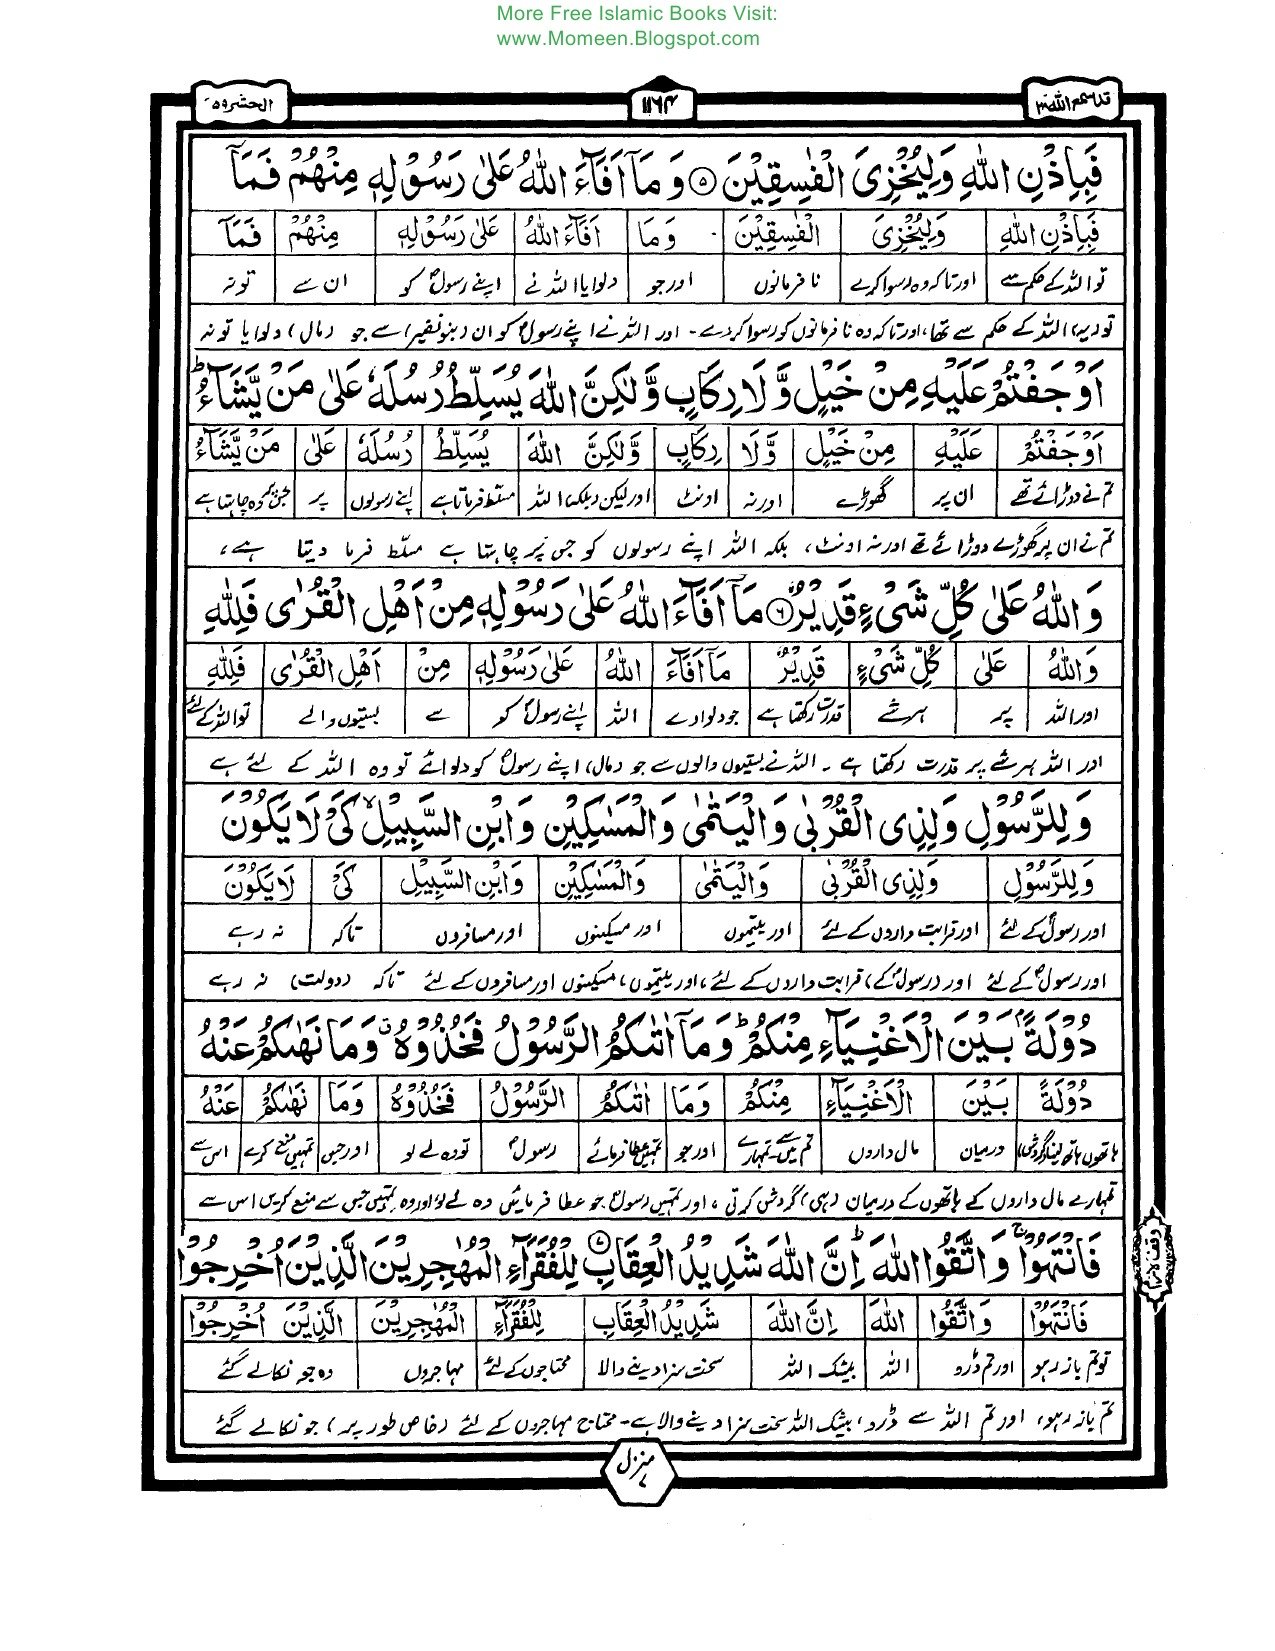 More Free Islamic Books Visit:
www.Momeen.Blogspot.com
قد سمع الله ۲۸
۱۱۶۴
الحشر ۵۹
فَبِاِذْنِ اللّٰهِ وَلِيُخْزِىَ الْفٰسِقِيْنَ ۵ وَمَآ اَفَآءَ اللّٰهُ عَلٰى رَسُوْلِهٖ مِنْهُمْ فَمَآ
فَبِاِذْنِ اللّٰهِ وَلِيُخْزِىَ الْفٰسِقِيْنَ وَمَا اَفَآءَ اللّٰهُ عَلٰى رَسُوْلِهٖ مِنْهُمْ فَمَآ
تو اللہ کے حکم سے اور تاکہ وہ رسوا کرے نا فرمانوں اور جو دلوایا اللہ نے اپنے رسولؐ کو ان سے تو نہ
تو (یہ) اللہ کے حکم سے تھا، اور تاکہ وہ نا فرمانوں کو رسوا کردے۔ اور اللہ نے اپنے رسولؐ کو ان (بنو نضیر) سے جو (مال) دلوایا تو نہ
اَوْجَفْتُمْ عَلَيْهِ مِنْ خَيْلٍ وَّلَا رِكَابٍ وَّلٰكِنَّ اللّٰهَ يُسَلِّطُ رُسُلَهٗ عَلٰى مَنْ يَّشَآءُ ط
اَوْجَفْتُمْ عَلَيْهِ مِنْ خَيْلٍ وَّلَا رِكَابٍ وَّلٰكِنَّ اللّٰهَ يُسَلِّطُ رُسُلَهٗ عَلٰى مَنْ يَّشَآءُ
تم نے دوڑائے تھے ان پر گھوڑے اور نہ اونٹ اور لیکن (بلکہ) اللہ مسلط فرماتا ہے اپنے رسولوں پر جس کو وہ چاہتا ہے
تم نے ان پر گھوڑے دوڑائے تھے اور نہ اونٹ، بلکہ اللہ اپنے رسولوں کو جس پر چاہتا ہے مسلّط فرما دیتا ہے،
وَاللّٰهُ عَلٰى كُلِّ شَىْءٍ قَدِيْرٌ ۶ مَآ اَفَآءَ اللّٰهُ عَلٰى رَسُوْلِهٖ مِنْ اَهْلِ الْقُرٰى فَلِلّٰهِ
وَاللّٰهُ عَلٰى كُلِّ شَىْءٍ قَدِيْرٌ مَآ اَفَآءَ اللّٰهُ عَلٰى رَسُوْلِهٖ مِنْ اَهْلِ الْقُرٰى فَلِلّٰهِ
اور اللہ پر ہر شے قدرت رکھتا ہے جو دلوادے اللہ اپنے رسولؐ کو سے بستیوں والے تو اللہ کے لئے
اور اللہ ہر شے پر قدرت رکھتا ہے۔ اللہ نے بستیوں والوں سے جو (مال) اپنے رسولؐ کو دلوائے تو وہ اللہ کے لئے ہے
وَلِلرَّسُوْلِ وَلِذِى الْقُرْبٰى وَالْيَتٰمٰى وَالْمَسٰكِيْنِ وَابْنِ السَّبِيْلِ لا كَىْ لَا يَكُوْنَ
وَلِلرَّسُوْلِ وَلِذِى الْقُرْبٰى وَالْيَتٰمٰى وَالْمَسٰكِيْنِ وَابْنِ السَّبِيْلِ كَىْ لَا يَكُوْنَ
اور رسولؐ کے لئے اور قرابت داروں کے لئے اور یتیموں اور مسکینوں اور مسافروں تاکہ نہ رہے
اور رسولؐ کے لئے اور (رسولؐ کے) قرابت داروں کے لئے، اور یتیموں، مسکینوں اور مسافروں کے لئے تاکہ (دولت) نہ رہے
دُوْلَةًۢ بَيْنَ الْاَغْنِيَآءِ مِنْكُمْ ط وَمَآ اٰتٰىكُمُ الرَّسُوْلُ فَخُذُوْهُ ق وَمَا نَهٰىكُمْ عَنْهُ
دُوْلَةً بَيْنَ الْاَغْنِيَآءِ مِنْكُمْ وَمَا اٰتٰىكُمُ الرَّسُوْلُ فَخُذُوْهُ وَمَا نَهٰىكُمْ عَنْهُ
ہاتھوں ہاتھ لینا (گردش) درمیان مال داروں تم میں سے تمہارے اور جو تمہیں عطا فرمائے رسولؐ تو وہ لے لو اور جس تمہیں منع کرے اس سے
تمہارے مال داروں کے ہاتھوں کے درمیان (ہی) گردش کرتی، اور تمہیں رسولؐ جو عطا فرمائیں وہ لے لو اور وہ تمہیں جس سے منع کریں اس سے
فَانْتَهُوْا ج وَاتَّقُوا اللّٰهَ ط اِنَّ اللّٰهَ شَدِيْدُ الْعِقَابِ ۷ لِلْفُقَرَآءِ الْمُهٰجِرِيْنَ الَّذِيْنَ اُخْرِجُوْا
وقف لازم
فَانْتَهُوْا وَاتَّقُوا اللّٰهَ اِنَّ اللّٰهَ شَدِيْدُ الْعِقَابِ لِلْفُقَرَآءِ الْمُهٰجِرِيْنَ الَّذِيْنَ اُخْرِجُوْا
تو تم باز رہو اور تم ڈرو اللہ بیشک اللہ سخت سزا دینے والا محتاجوں کے لئے مہاجروں وہ جو نکالے گئے
تم باز رہو، اور تم اللہ سے ڈرو، بیشک اللہ سخت سزا دینے والا ہے۔ محتاج مہاجروں کے لئے (خاص طور پر) جو نکالے گئے
منزل ۷